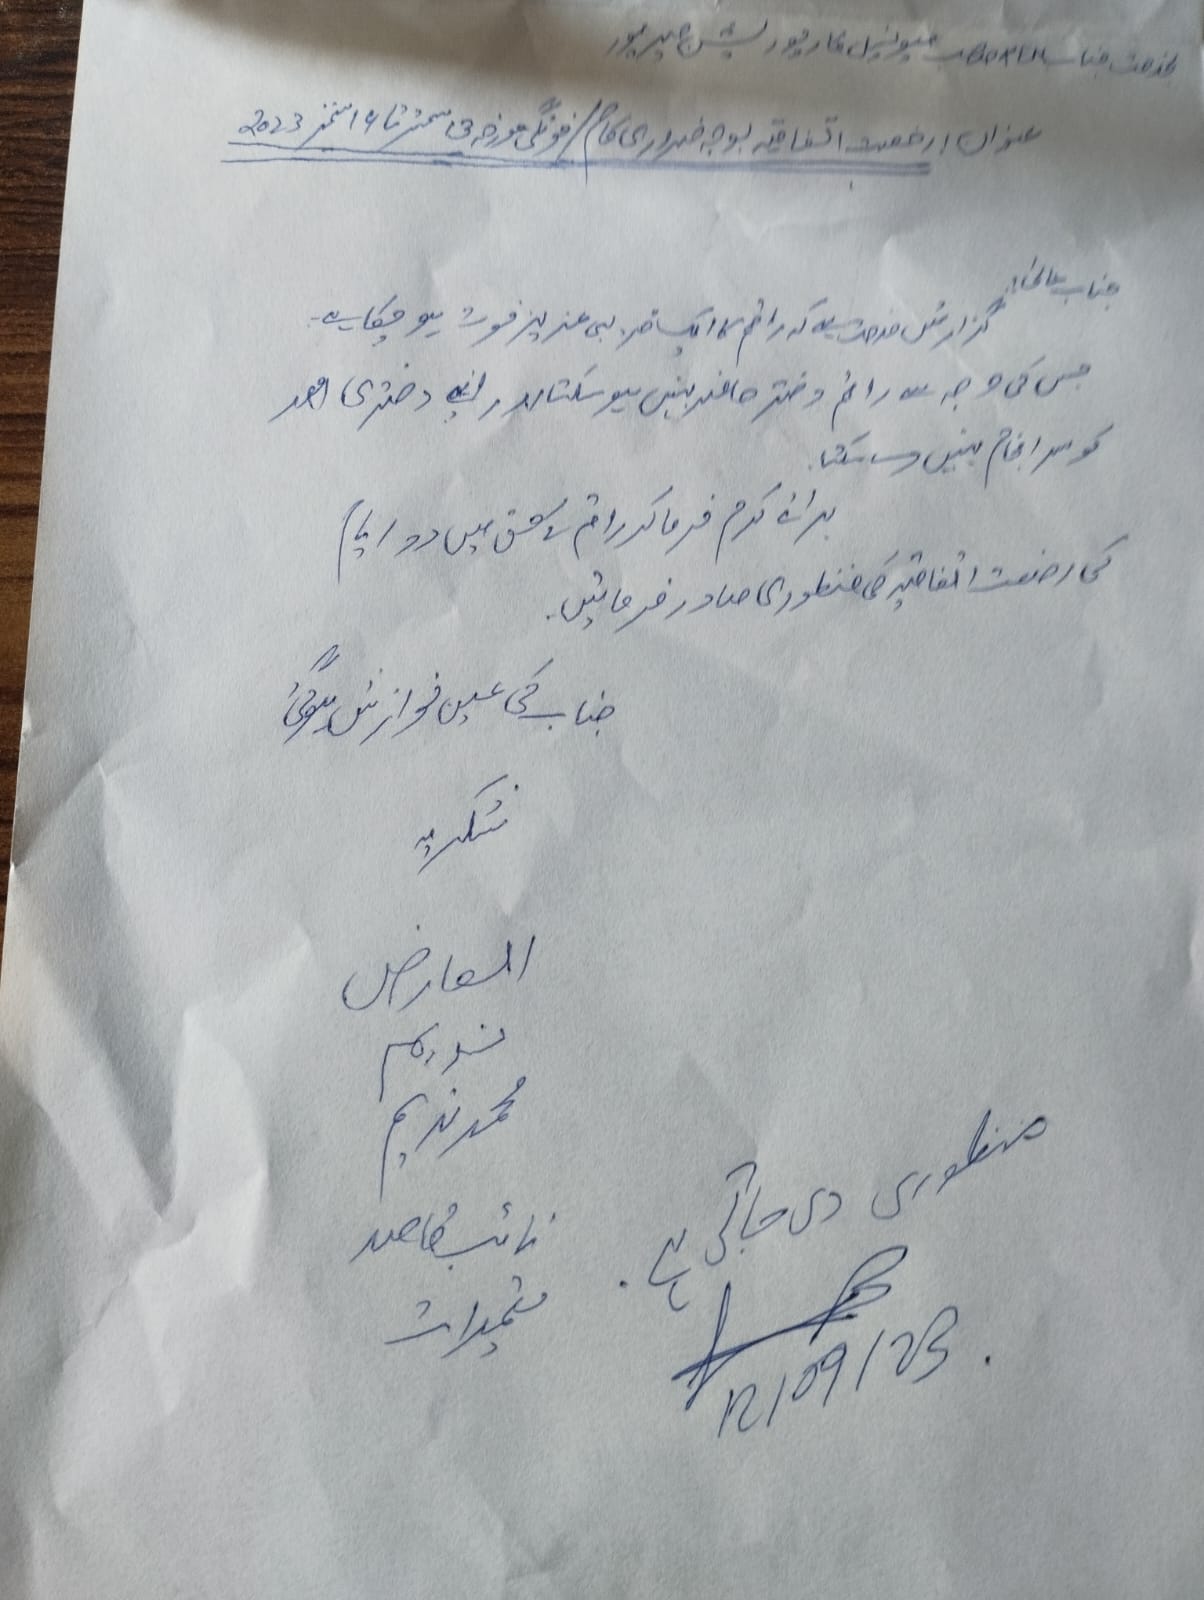 بخدمت جناب صاحب میونسپل کارپوریشن میرپور
عنوان: رخصت اتفاقیہ بوجہ ضروری کام / فوتگی مورخہ 13 ستمبر تا ستمبر 2023
جناب عالی!
گزارش خدمت ہے کہ راقم کا ایک قریبی عزیز فوت ہو چکا ہے۔
جس کی وجہ سے راقم دفتر حاضر نہیں ہو سکتا اور اپنے دفتری امور
کو سرانجام نہیں دے سکتا۔
برائے کرم فرما کر راقم کے حق میں دو ایام
کی رخصت اتفاقیہ کی منظوری صادر فرمائیں۔
جناب کی عین نوازش ہو گی
شکریہ
العارض
محمد ندیم
نائب قاصد
تعمیرات
منظوری دی جاتی ہے۔
12/09/23